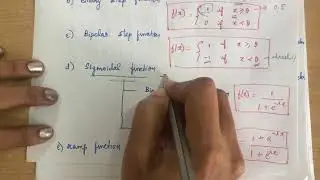 b) Binary step function f(x) = { 1 if x ≥ θ
0 if x < θ
0.5
c) Bipolar step function f(x) = { 1 if x ≥ θ
-1 if x < θ
d) Sigmoidal function
Bi
f(x) = 1 / 1 + e^-λx
1 - e^-λx / 1 + e^-λx
e) Ramp function